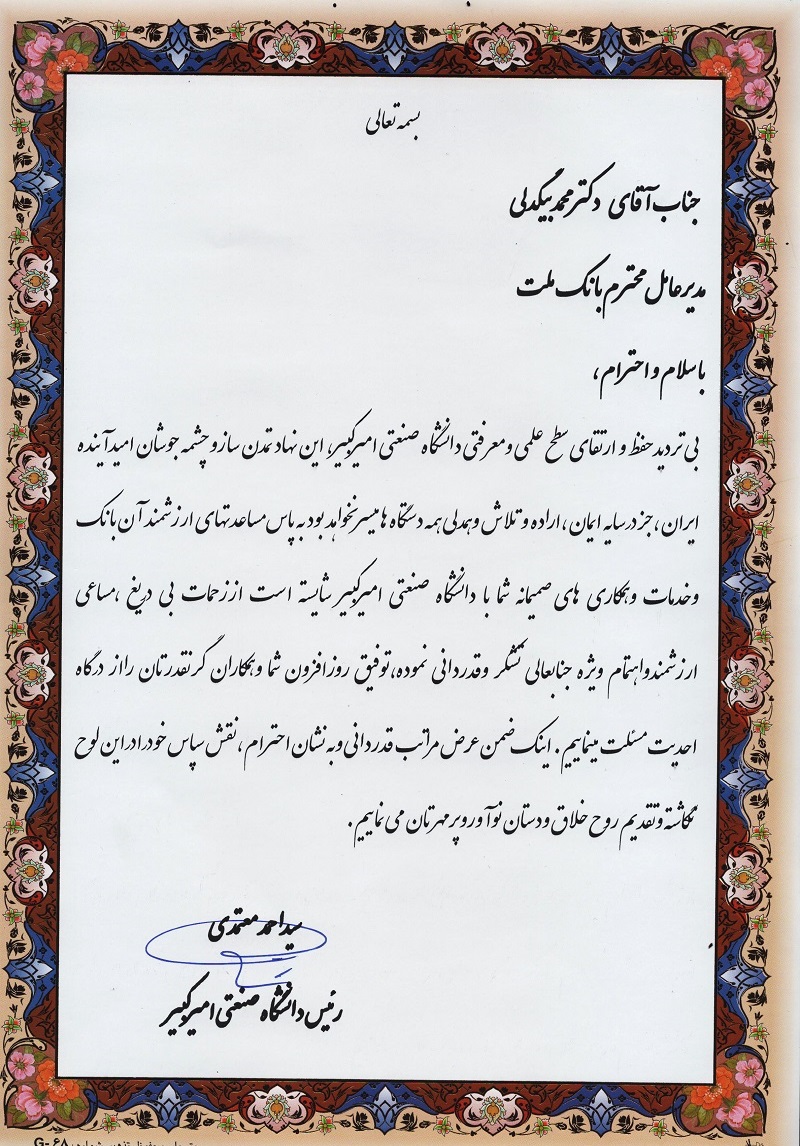 بسمه تعالی
جناب آقای دکتر محمد بیگدلی
مدیرعامل محترم بانک ملت
با سلام و احترام،
بی تردید حفظ و ارتقای سطح علمی و معرفتی دانشگاه صنعتی امیرکبیر، این نهاد تمدن ساز و چشمه جوشان امید آینده
ایران، جز در سایه ایمان، اراده و تلاش و همدلی همه دستگاه ها میسر نخواهد بود به پاس مساعدتهای ارزشمند آن بانک
و خدمات و همکاری های صمیمانه شما با دانشگاه صنعتی امیرکبیر شایسته است از زحمات بی دریغ ،مساعی
ارزشمند و اهتمام ویژه جنابعالی تشکر و قدردانی نموده، توفیق روزافزون شما و همکاران گرنقدرتان را از درگاه
احدیت مسئلت مینماییم. اینک ضمن عرض مراتب قدردانی و به نشان احترام، نقش سپاس خود را در این لوح
نگاشته و تقدیم روح خلاق و دستان نوآور و پر مهرتان می نماییم.
سید احمد معتمدی
رئیس دانشگاه صنعتی امیرکبیر
G-68